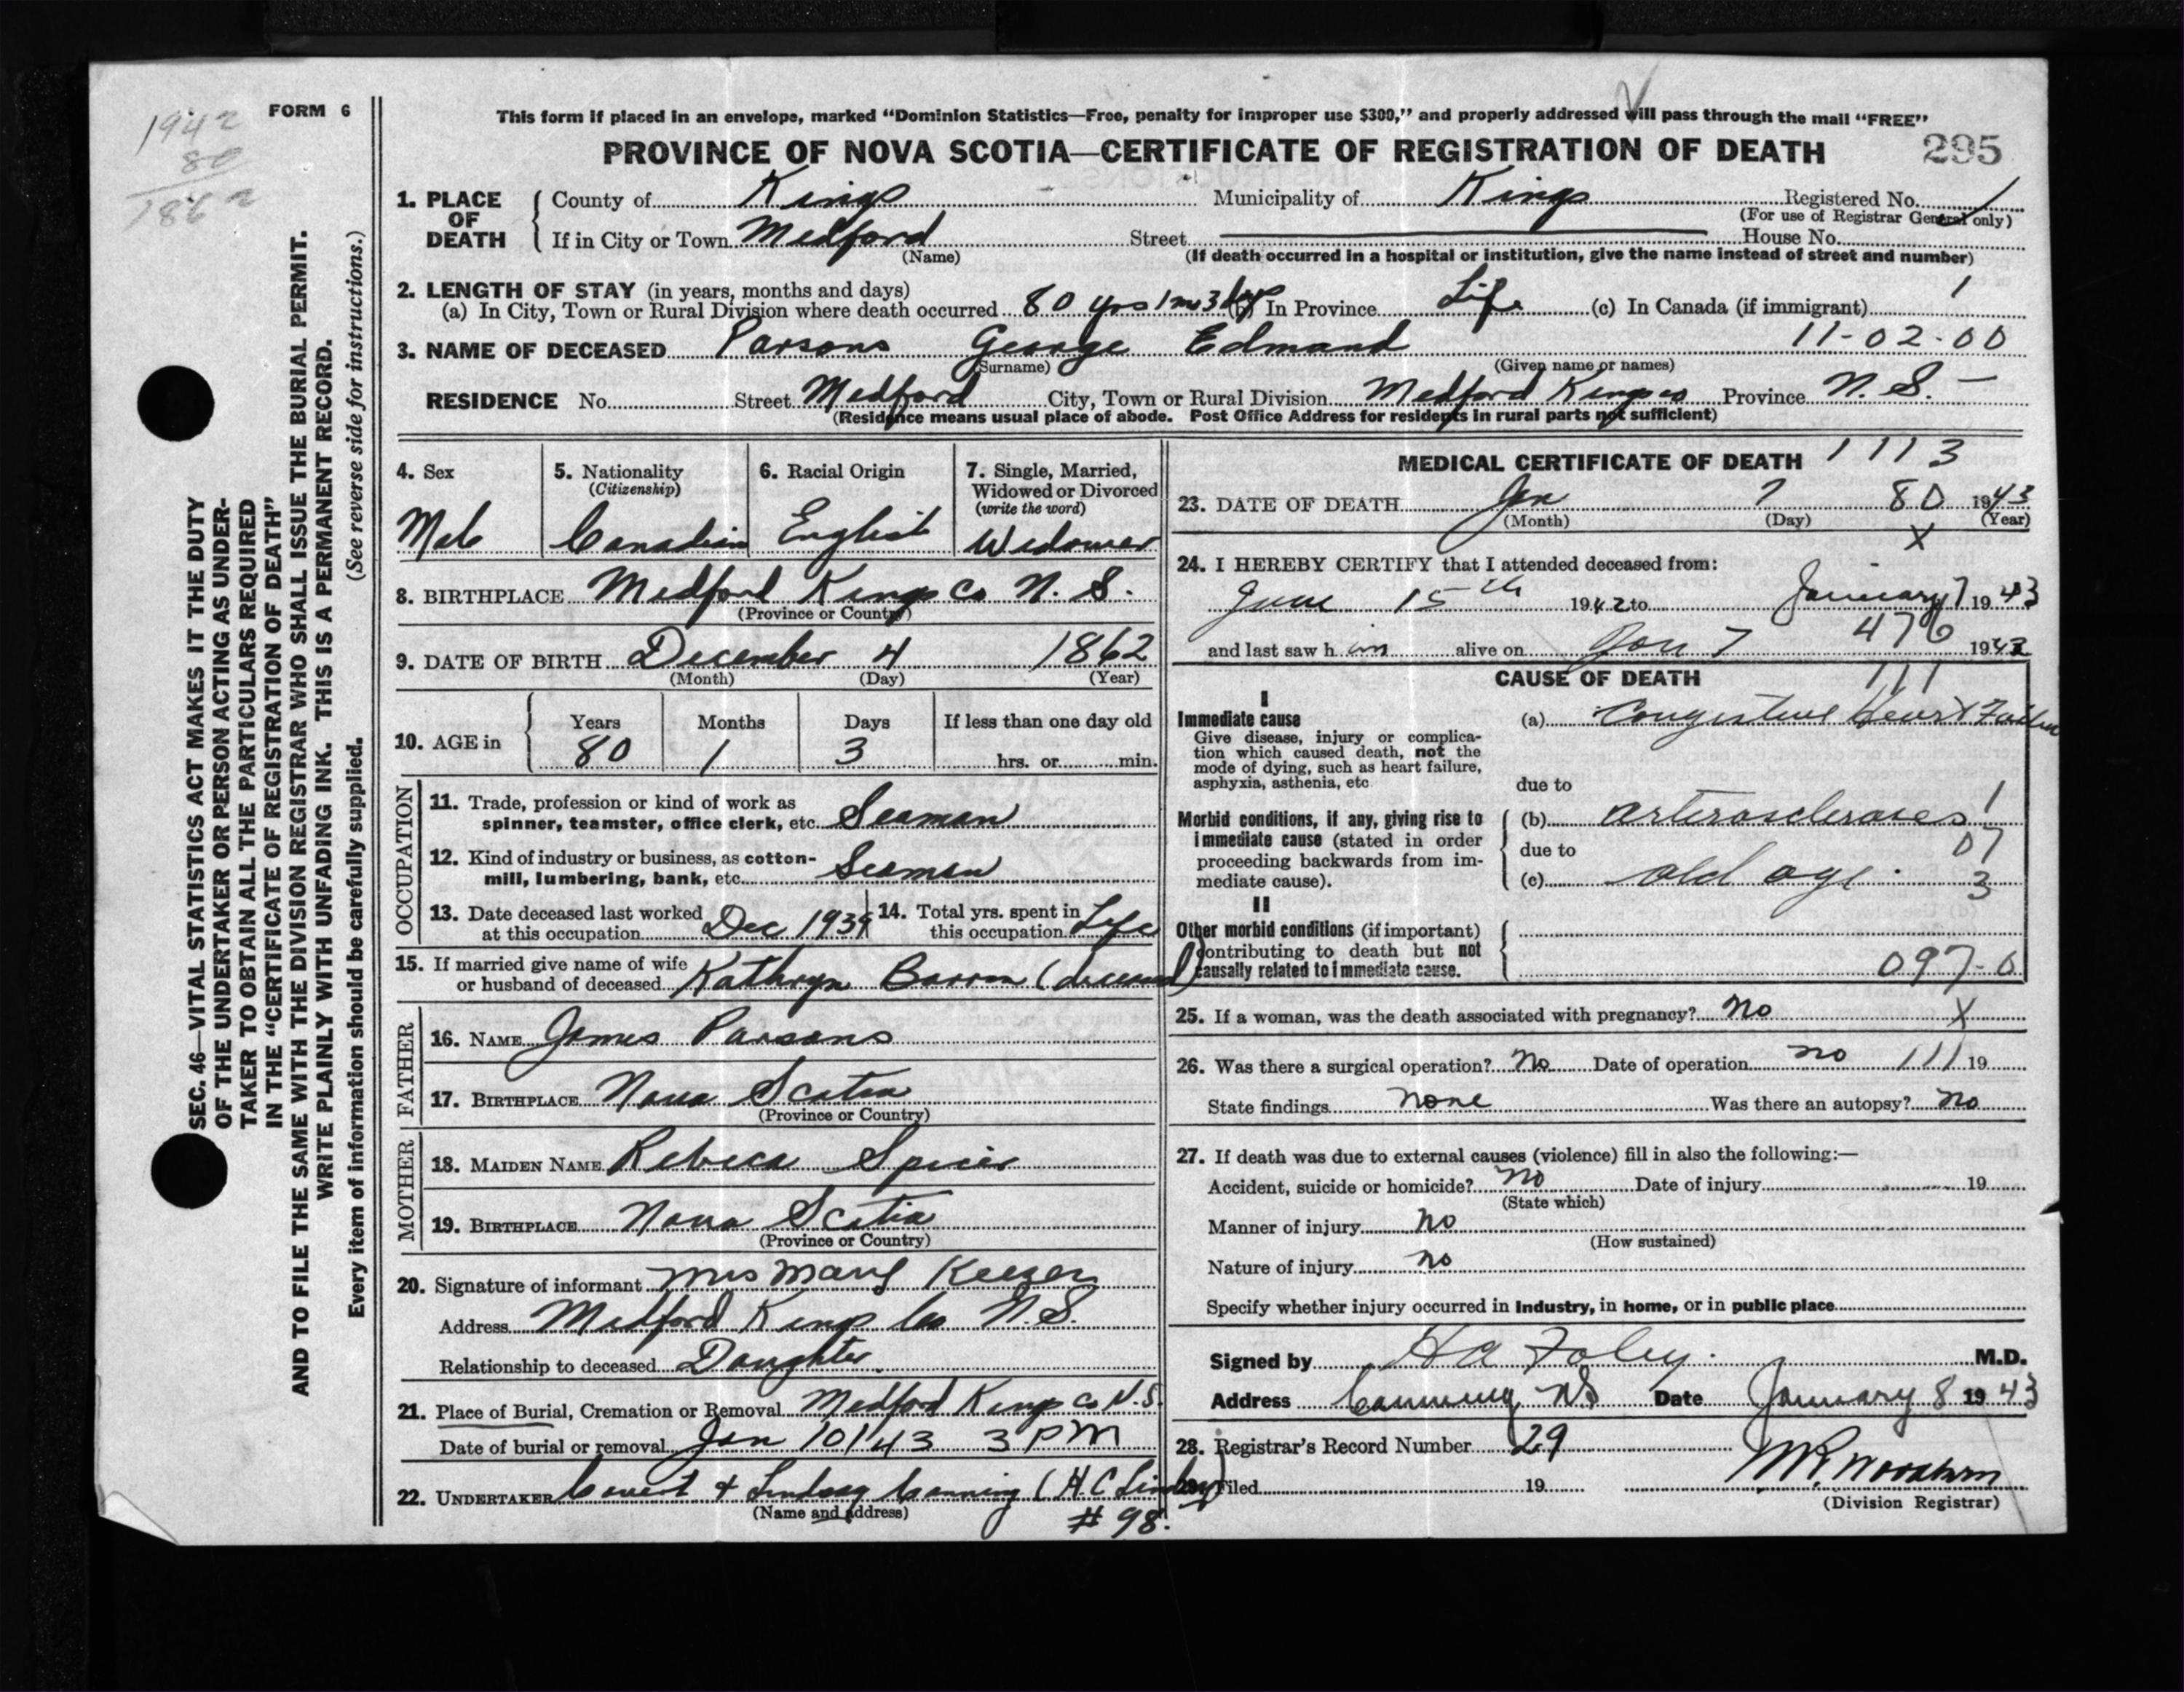 1942
80
1862
FORM 6
This form if placed in an envelope, marked "Dominion Statistics—Free, penalty for improper use $300," and properly addressed will pass through the mail "FREE"
PROVINCE OF NOVA SCOTIA—CERTIFICATE OF REGISTRATION OF DEATH 295
1. PLACE OF DEATH
County of Kings Municipality of Kings Registered No.
(For use of Registrar General only)
If in City or Town Medford Street House No.
(Name) (If death occurred in a hospital or institution, give the name instead of street and number)
2. LENGTH OF STAY (in years, months and days) 1
(a) In City, Town or Rural Division where death occurred 80 yrs 1 m 3 dys (b) In Province Life (c) In Canada (if immigrant)
3. NAME OF DECEASED Parsons George Edmand 11-02-00
(Surname) (Given name or names)
RESIDENCE No. Street Medford City, Town or Rural Division Medford Kings co Province N.S.
(Residence means usual place of abode. Post Office Address for residents in rural parts not sufficient)
4. Sex
Male
5. Nationality
(Citizenship)
Canadian
6. Racial Origin
English
7. Single, Married,
Widowed or Divorced
(write the word)
Widower
8. BIRTHPLACE Medford Kings Co N.S.
(Province or Country)
9. DATE OF BIRTH December 4 1862
(Month) (Day) (Year)
10. AGE in
Years Months Days If less than one day old
80 1 3 hrs. or min.
OCCUPATION
11. Trade, profession or kind of work as
spinner, teamster, office clerk, etc. Seaman
12. Kind of industry or business, as cotton-
mill, lumbering, bank, etc. Seaman
13. Date deceased last worked
at this occupation Dec 1939
14. Total yrs. spent in
this occupation Life
15. If married give name of wife
or husband of deceased Kathryn (deceased)
FATHER
16. NAME James Parsons
17. BIRTHPLACE Nova Scotia
(Province or Country)
MOTHER
18. MAIDEN NAME Rebeca Spicer
19. BIRTHPLACE Nova Scotia
(Province or Country)
20. Signature of informant Mrs Mary Keezer
Address Medford Kings Co N.S.
Relationship to deceased Daughter
21. Place of Burial, Cremation or Removal Medford Kings Co N.S.
Date of burial or removal Jan 10/43 3 PM
22. UNDERTAKER & Lindsay Canning (H.C Lindsay)
(Name and address) # 98.
MEDICAL CERTIFICATE OF DEATH 1113
23. DATE OF DEATH Jan 7 80 1943
(Month) (Day) (Year)
X
24. I HEREBY CERTIFY that I attended deceased from:
June 15th 1942 to January 7 1943
476
and last saw him alive on Jan 7 1943
CAUSE OF DEATH 111
I
Immediate cause
Give disease, injury or complica-
tion which caused death, not the
mode of dying, such as heart failure,
asphyxia, asthenia, etc
(a) Congestive Heart Failure
due to
Morbid conditions, if any, giving rise to
immediate cause (stated in order
proceeding backwards from im-
mediate cause).
1
(b) arteroscleroses
07
due to
(c) old age 3
II
Other morbid conditions (if important)
contributing to death but not
causally related to immediate cause.
097-0
25. If a woman, was the death associated with pregnancy? No X
26. Was there a surgical operation? No Date of operation no 111 19
State findings None Was there an autopsy? No
27. If death was due to external causes (violence) fill in also the following:—
Accident, suicide or homicide? No Date of injury 19
(State which)
Manner of injury No
(How sustained)
Nature of injury No
Specify whether injury occurred in Industry, in home, or in public place
Signed by H a Foley M.D.
Address Canning NS Date January 8 1943
28. Registrar's Record Number 29
29. Filed 19
(Division Registrar)
SEC. 46—VITAL STATISTICS ACT MAKES IT THE DUTY
OF THE UNDERTAKER OR PERSON ACTING AS UNDER-
TAKER TO OBTAIN ALL THE PARTICULARS REQUIRED
IN THE "CERTIFICATE OF REGISTRATION OF DEATH"
AND TO FILE THE SAME WITH THE DIVISION REGISTRAR WHO SHALL ISSUE THE BURIAL PERMIT.
WRITE PLAINLY WITH UNFADING INK. THIS IS A PERMANENT RECORD.
Every item of information should be carefully supplied. (See reverse side for instructions.)